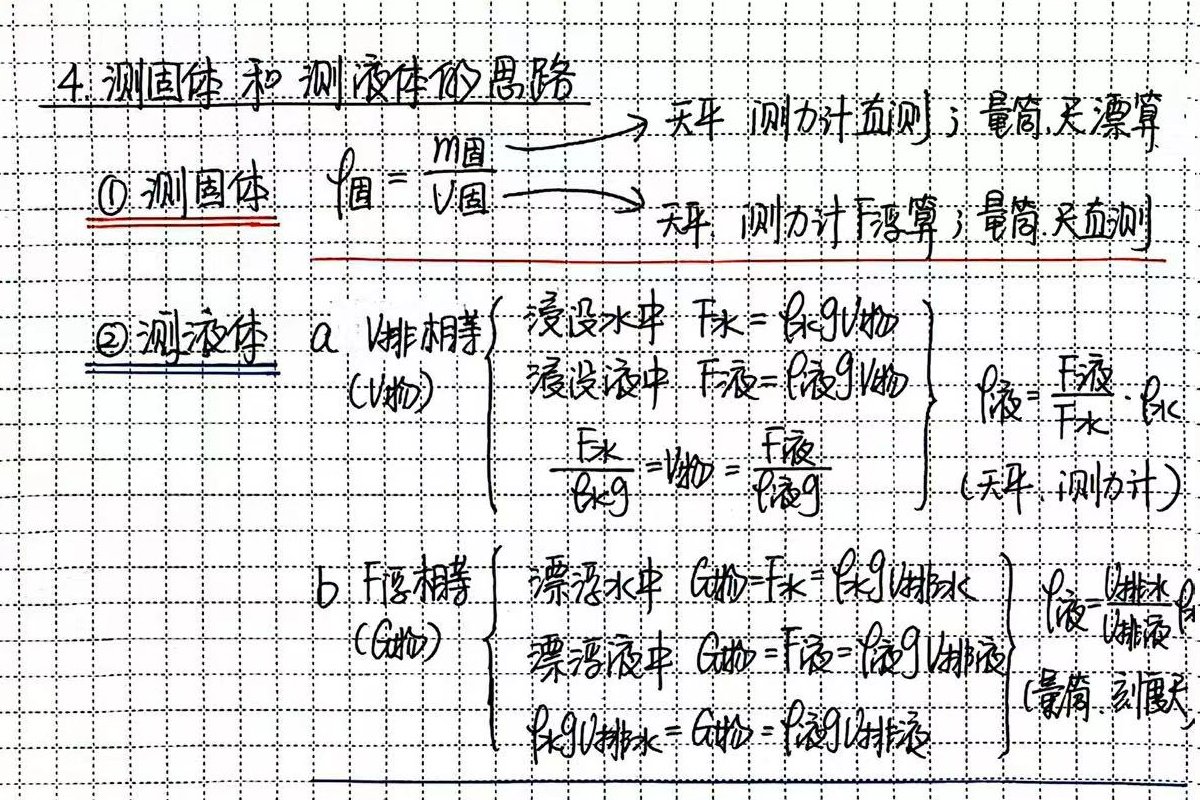 4. 测固体和测液体的思路
① 测固体 ρ固 = m固/V固 → 天平 测力计直测；量筒、尺漂算
→ 天平、测力计F浮算；量筒、尺直测
② 测液体 a V排相等 (V物)
浸没水中 F水 = ρ水gV物
浸没液中 F液 = ρ液gV物
F水/ρ水g = V物 = F液/ρ液g
ρ液 = F液/F水 · ρ水
(天平、测力计)
b F浮相等 (G物)
漂浮水中 G物 = F水 = ρ水gV排水
漂浮液中 G物 = F液 = ρ液gV排液
ρ水gV排水 = G物 = ρ液gV排液
ρ液 = V排水/V排液 ρ
(量筒、刻度尺